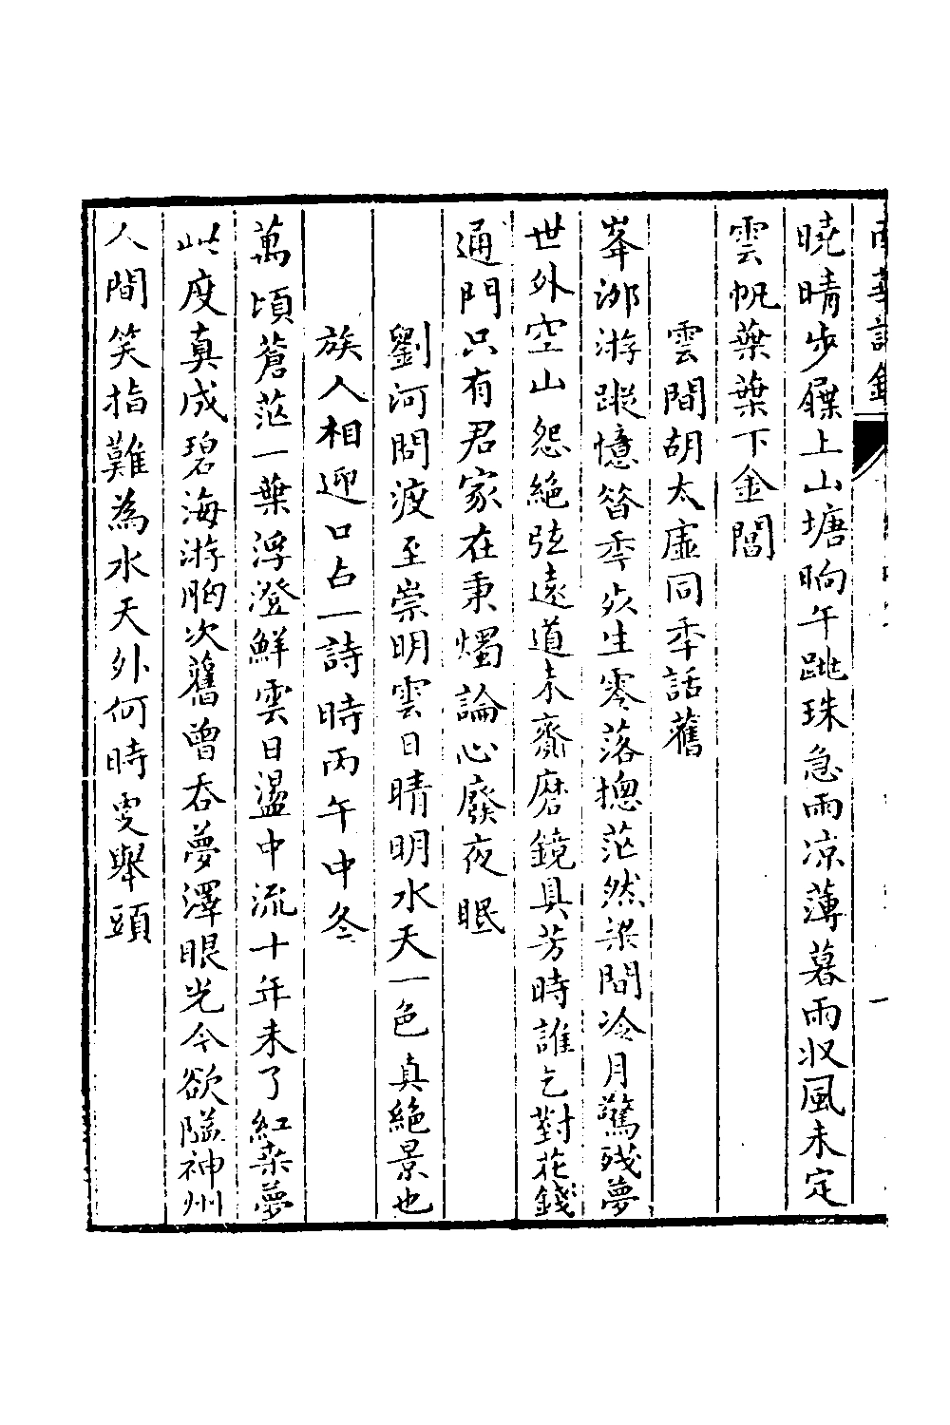 曉晴步屧上山塘晌午跳珠急雨凉薄暮雨収風未定
雲帆葉葉下金閶
雲間胡太虛同年話舊
峯泖游蹤憶昝秊生零落摠茫然梁間冷月驚殘夢
世外空山怨絕弦遠道未齎磨鏡具芳時誰乞對花錢
通門只有君家在秉燭論心廢夜眠
劉河問渡至崇明雲日晴明水天一色真絕景也
族人相迎口占一詩時丙午中冬
萬頃蒼茫一葉浮澄鮮雲日盪中流十年未了紅桑夢
此度真成碧海游胸次舊曾吞夢澤眼光今欲隘神州
人間笑指難為水天外何時叓舉頭